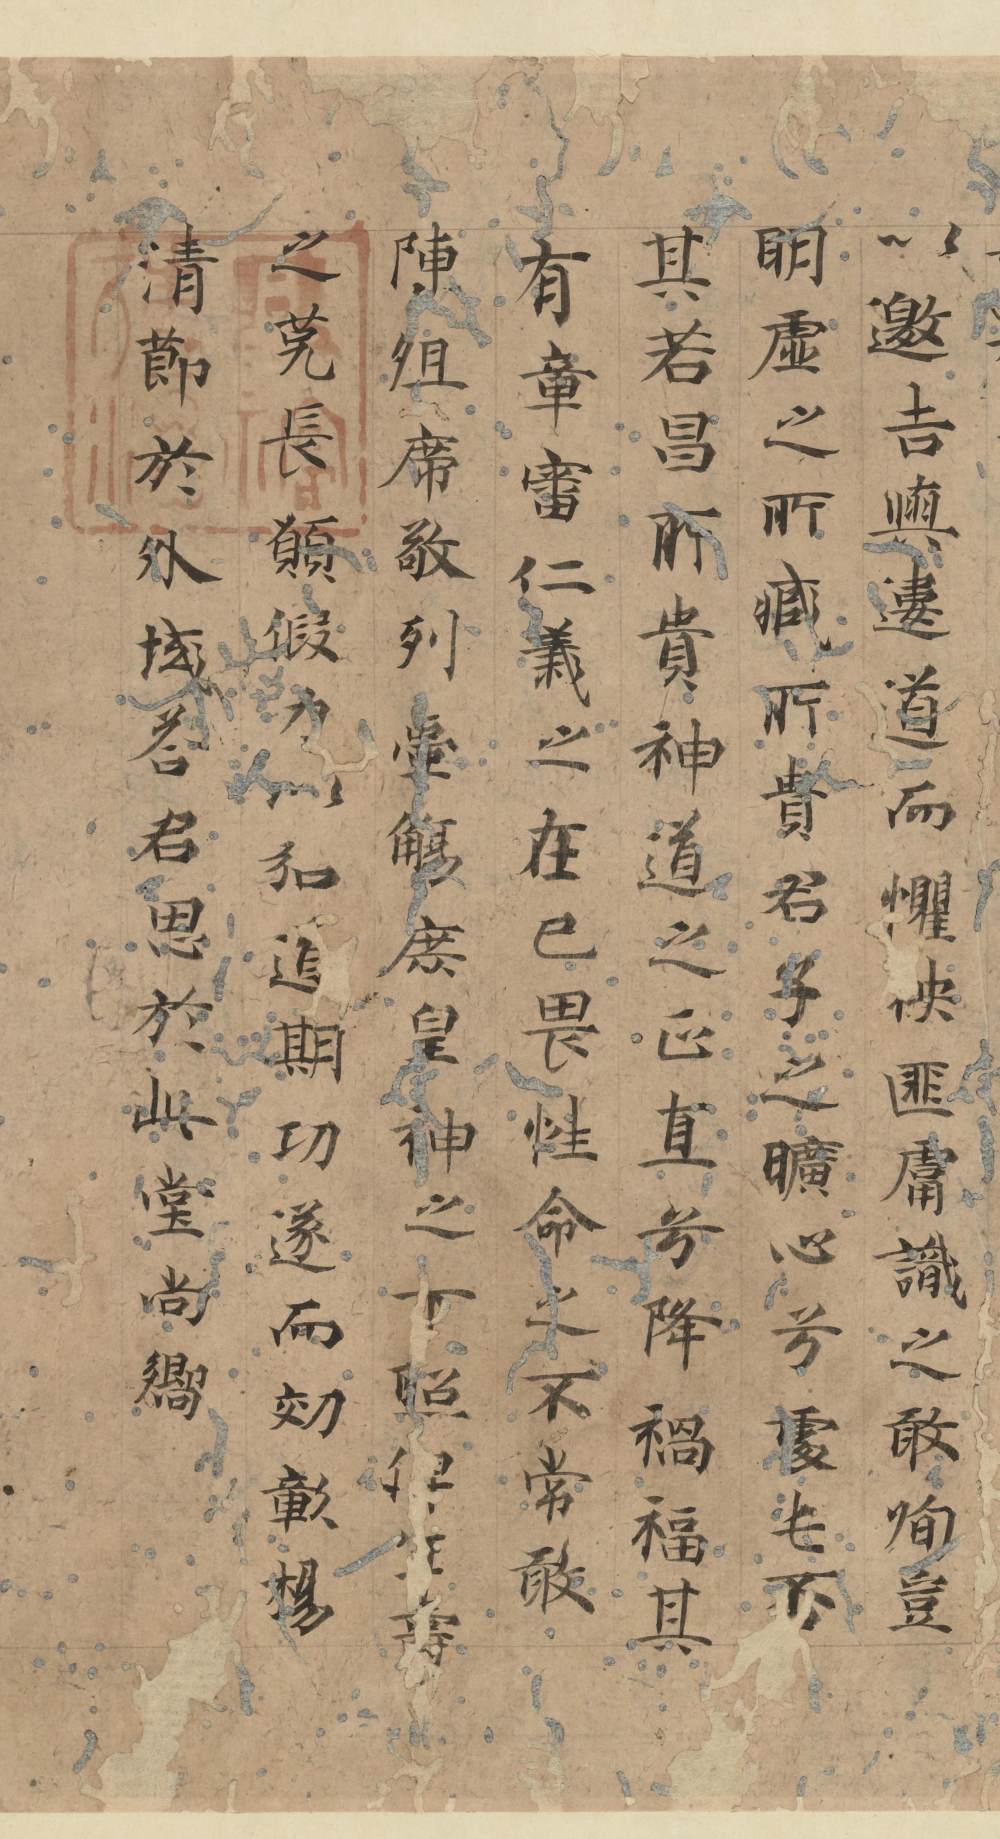 以邀吉與遘道而懼怏匪膚識之敢徇豈
明虛之所臧所貴君子之曠心兮處屯否
其若昌所貴神道之正直兮降禍福其
有章審仁義之在己畏性命之不常敢
陳俎席敬列壺觴庶皇神之下照俾生壽
之克長願假力以追期功遂而効彰揚
清節於外域荅君恩於此堂尚嚮